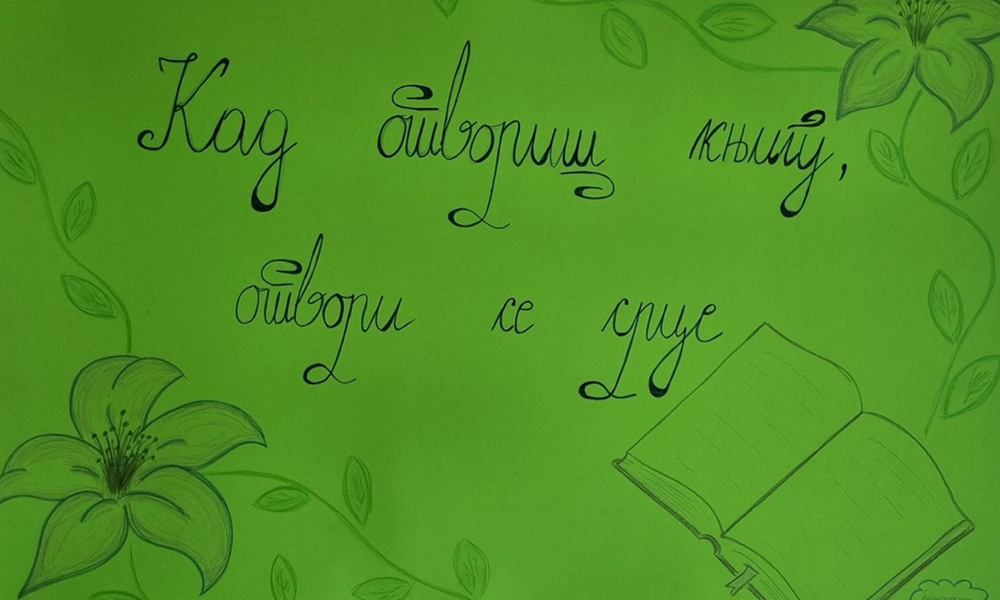 Кад отвориш књигу,
отвори се срце